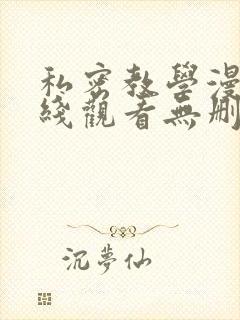 私密教學漫
綫觀看無刪
沉夢仙